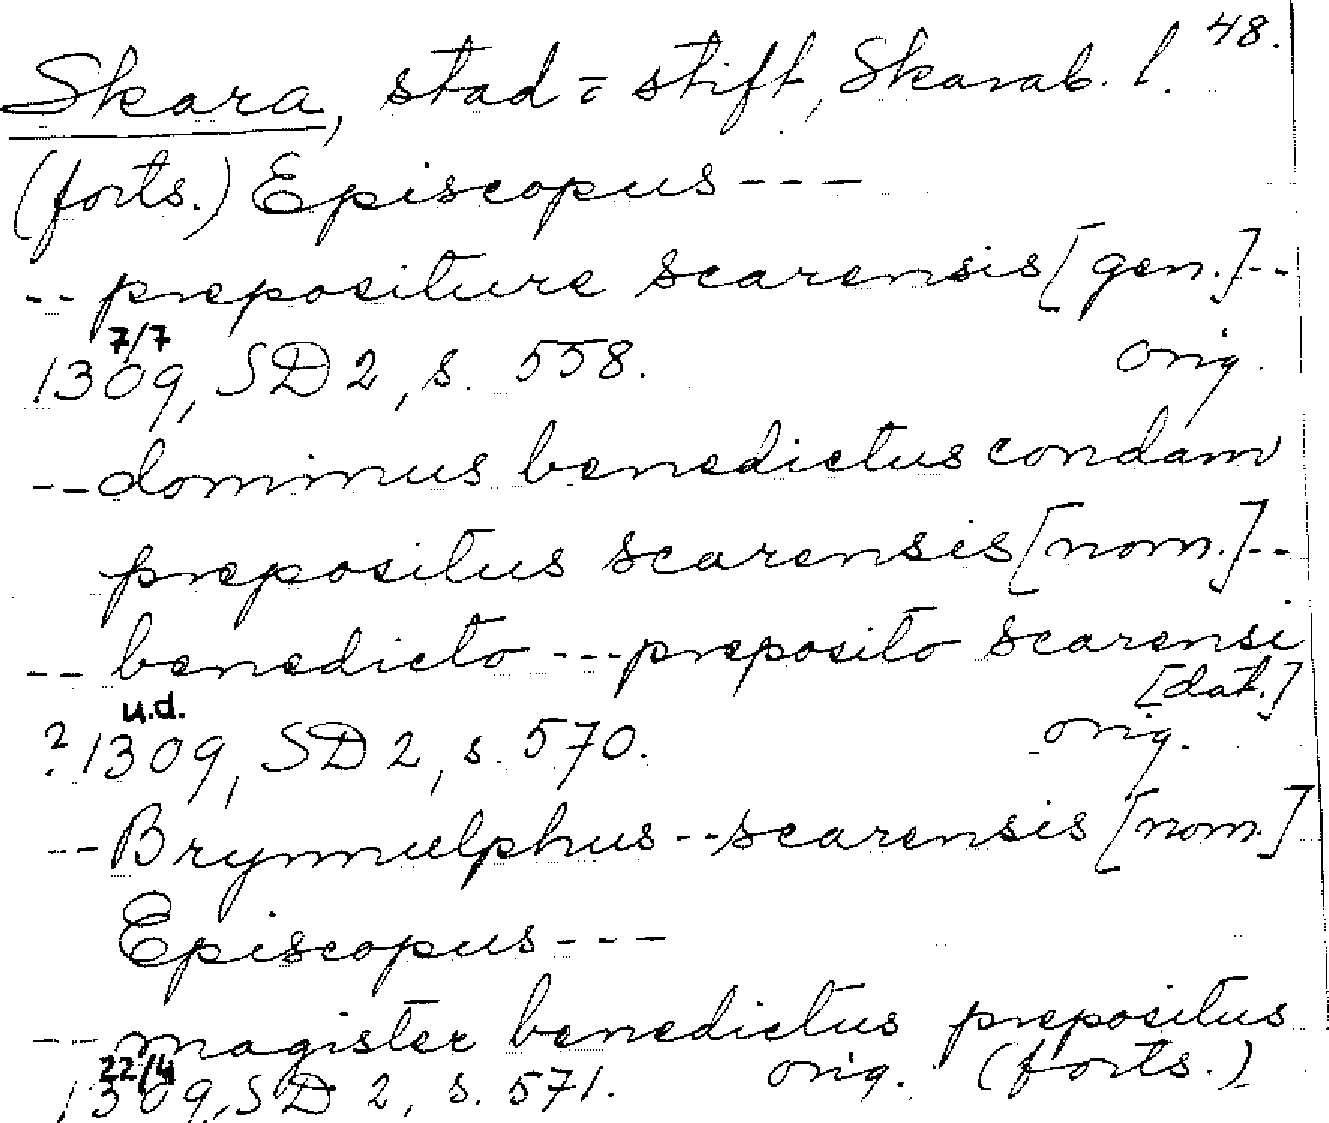 48.
Skara, stad = stift, Skarab. l.
(forts.) Episcopus ---
-- prepositure scarensis [gen.] --
7/7
1309, SD 2, s. 558. orig.
-- dominus benedictus condam
prepositus scarensis [nom.] --
-- benedicto --- preposito scarensi
[dat.]
u.d.
? 1309, SD 2, s. 570. orig.
-- Brynnulphus -- scarensis [nom.]
Episcopus ---
-- magister benedictus prepositus
22/4
1309, SD 2, s. 571. orig. (forts.)